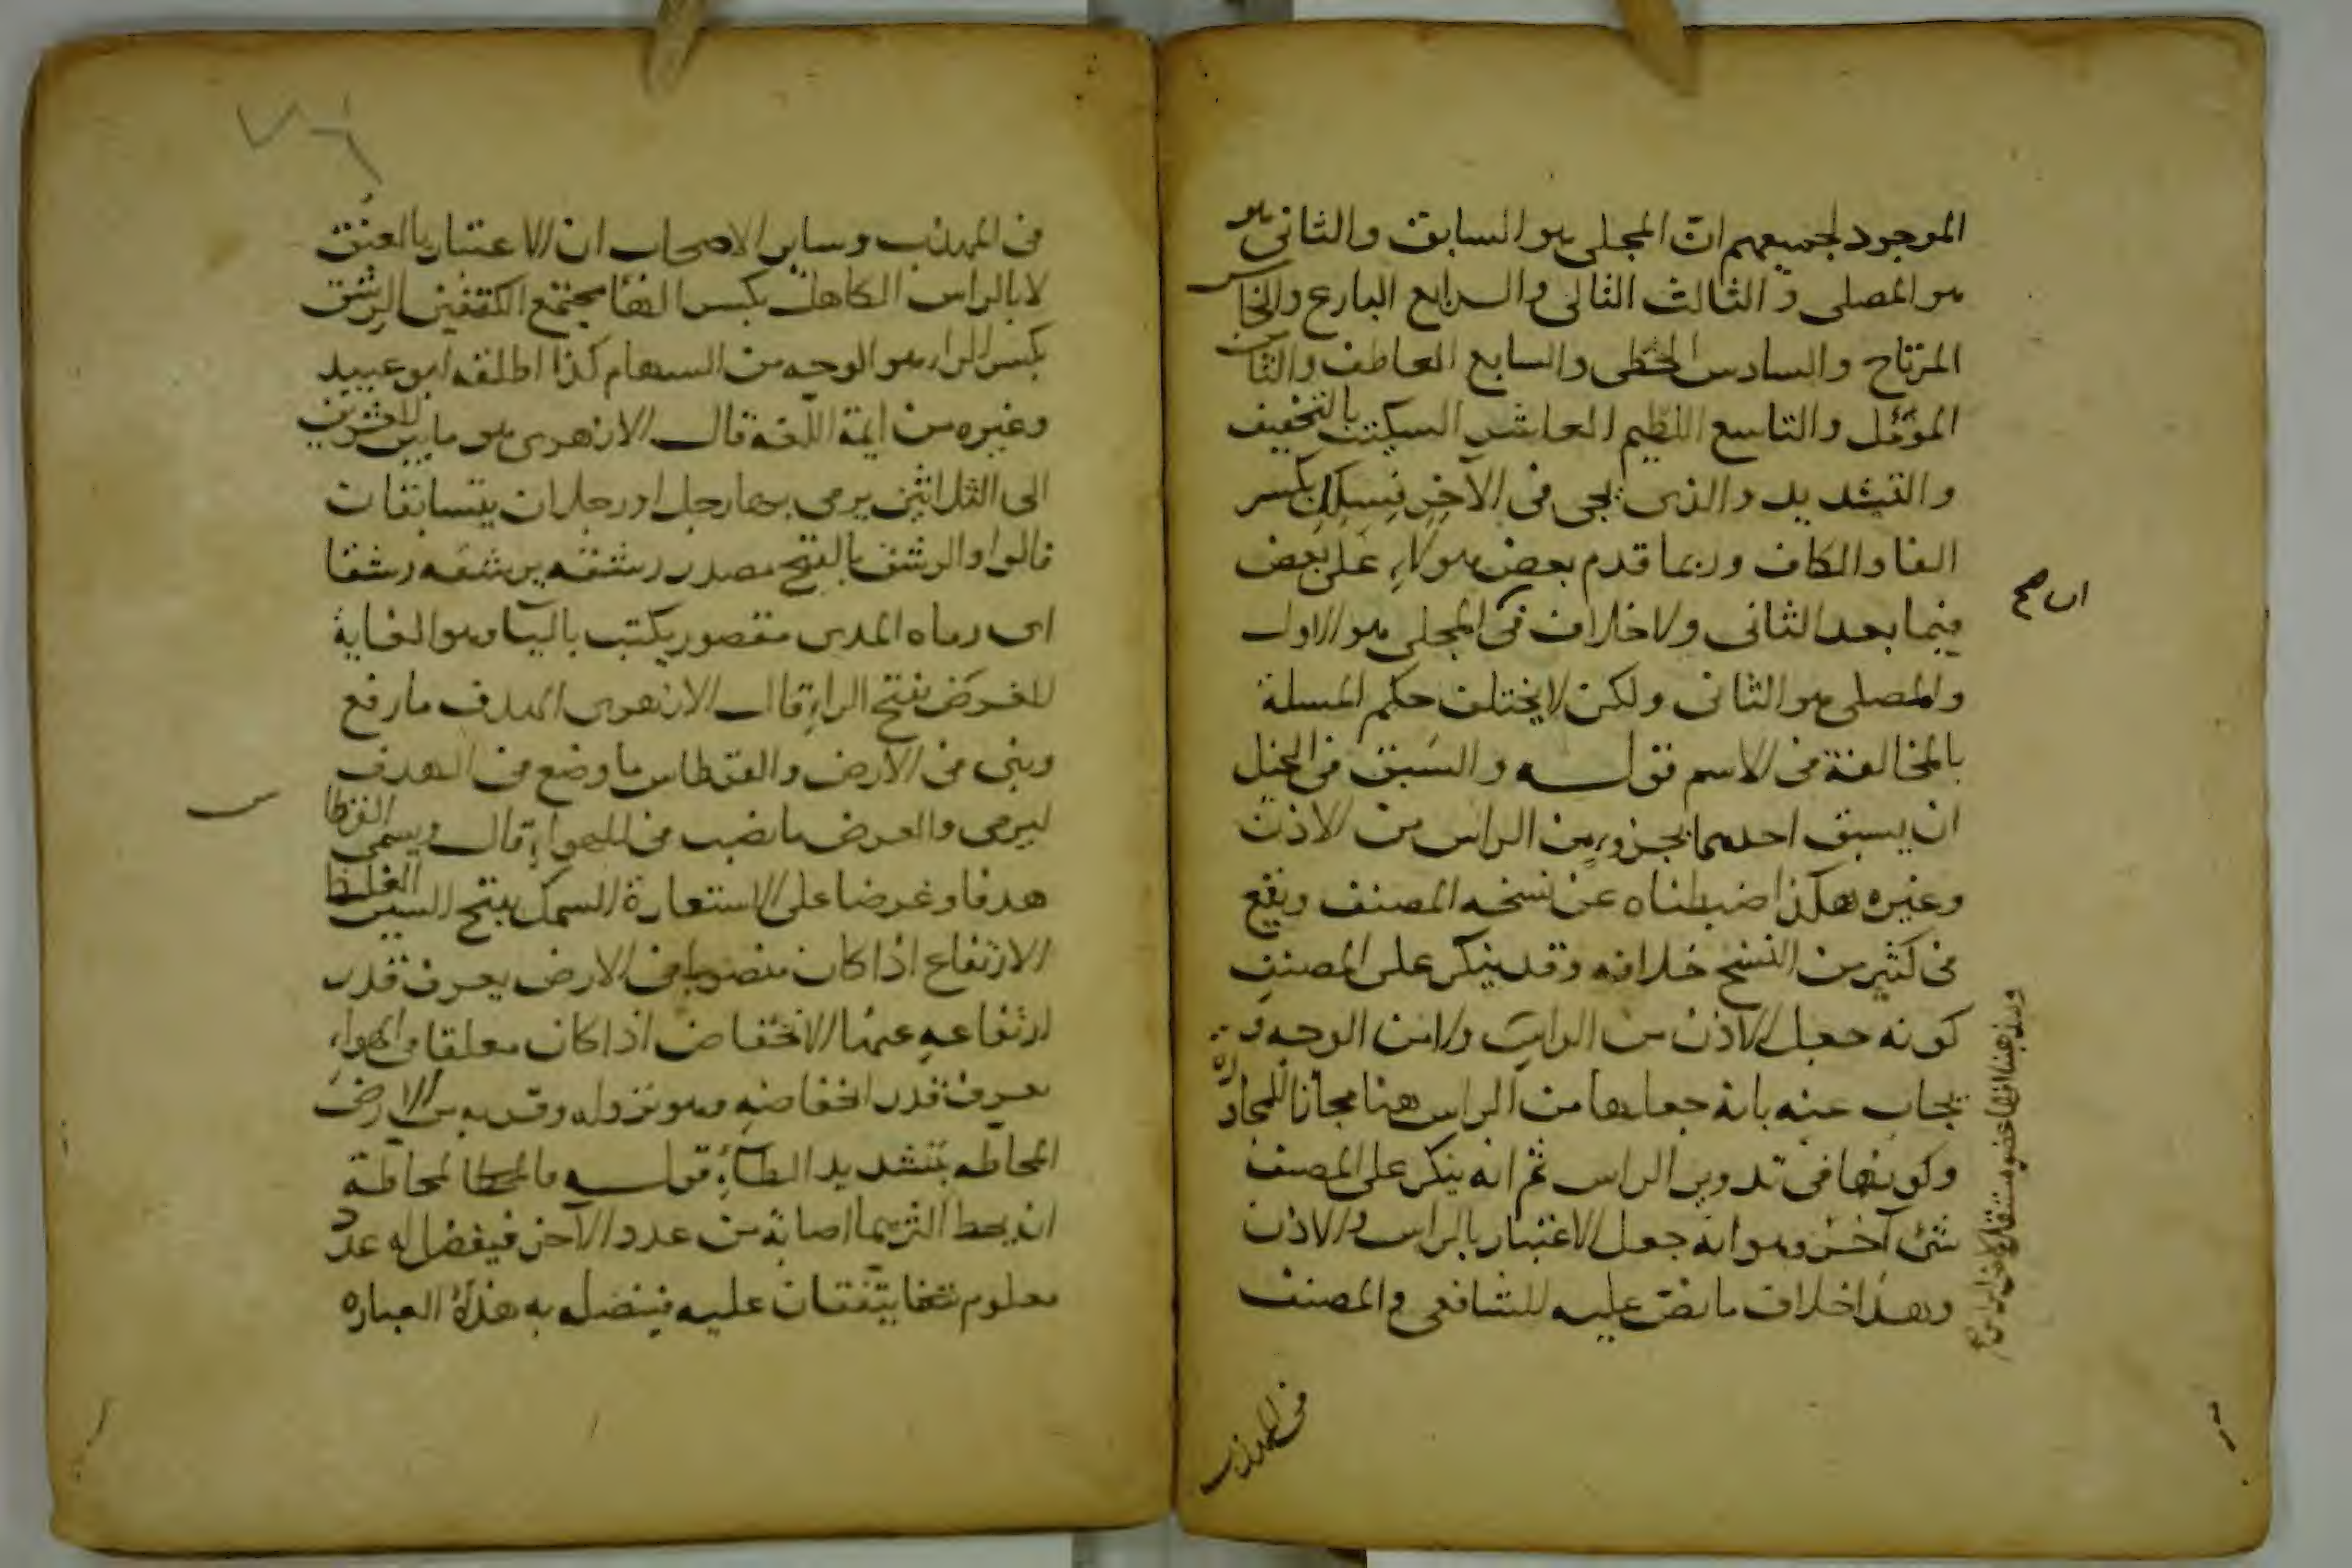 الموجود لجميعهم ان المجلى هو السابق والثانى هو
هو المصلى والثالث التالى والرابع البارع والخامس
المرتاح والسادس الحظى والسابع العاطف والثامن
المؤمل والتاسع اللطيم العاشر السكيت بالتخفيف
والتشديد والذى يجى فى الآخر فسكل بكسر
الفا والكاف وربما قدم بعض هولاء على بعض
فيما بعد الثانى ولا خلاف فى المجلى هو الاول
ان صح
والمصلى هو الثانى ولكن لا يختلف حكم المسلة
بالمخالفة فى الاسم قوله والسبق فى الخيل
ان يسبق احدهما بجزء من الراس من الاذن
وغيره هكذا ضبطناه عن نسخه المصنف ويقع
فى كثير من النسخ خلافه وقد ينكر على المصنف
كونه جعل الاذن من الراس ولا من الوجه و
يجاب عنه بانه جعلها من الراس هنا مجازا للمجاورة
وكونها فى تدوير الراس ثم انه ينكر على المصنف
شئ آخر وهو انه جعل الاعتبار بالراس والاذن
وهذا خلاف ما نص عليه للشافعى والمصنف
ومذهبنا انها عضو مستقل لا من الراس
فى المهذب
فى المهذب وساير الاصحاب ان الاعتبار بالعنق
لا بالراس الكاهل بكسر الها مجتمع الكتفين الرشق
بكسر الرا هو الوجه من السهام كذا اطلقه ابو عبيد
وغيره من ايمة اللغة قال الازهرى هو ما بين العشرين
الى الثلاثين يرمى بها رجل او رجلان يتسابقان
قالوا والرشق بالفتح مصدر رشقه يرشقه رشقا
اى رماه المدى مقصور يكتب باليا وهو الغاية
للغرض بفتح الراء قال الازهرى الهدف ما رفع
وبنى فى الارض والقرطاس ما وضع فى الهدف
ليرمى والغرض ما نصب فى الهواء قال ويسمى القرطا
س
هدفا وغرضا على الاستعارة السمك بفتح السين الغلظ
الارتفاع اذا كان منصوبا فى الارض يعرف قدر
ارتفاعه عنها الانخفاض اذا كان معلقا فى الهواء
يعرف قدر انخفاضه وهو نزوله وقربه من الارض
المحاطه بتشديد الطاء قوله فالمحاطة
ان يحط اكثرهما اصابة من عدد الآخر فيفضل له عدد
معلوم يتفقان عليه فينضله به هذه العباره